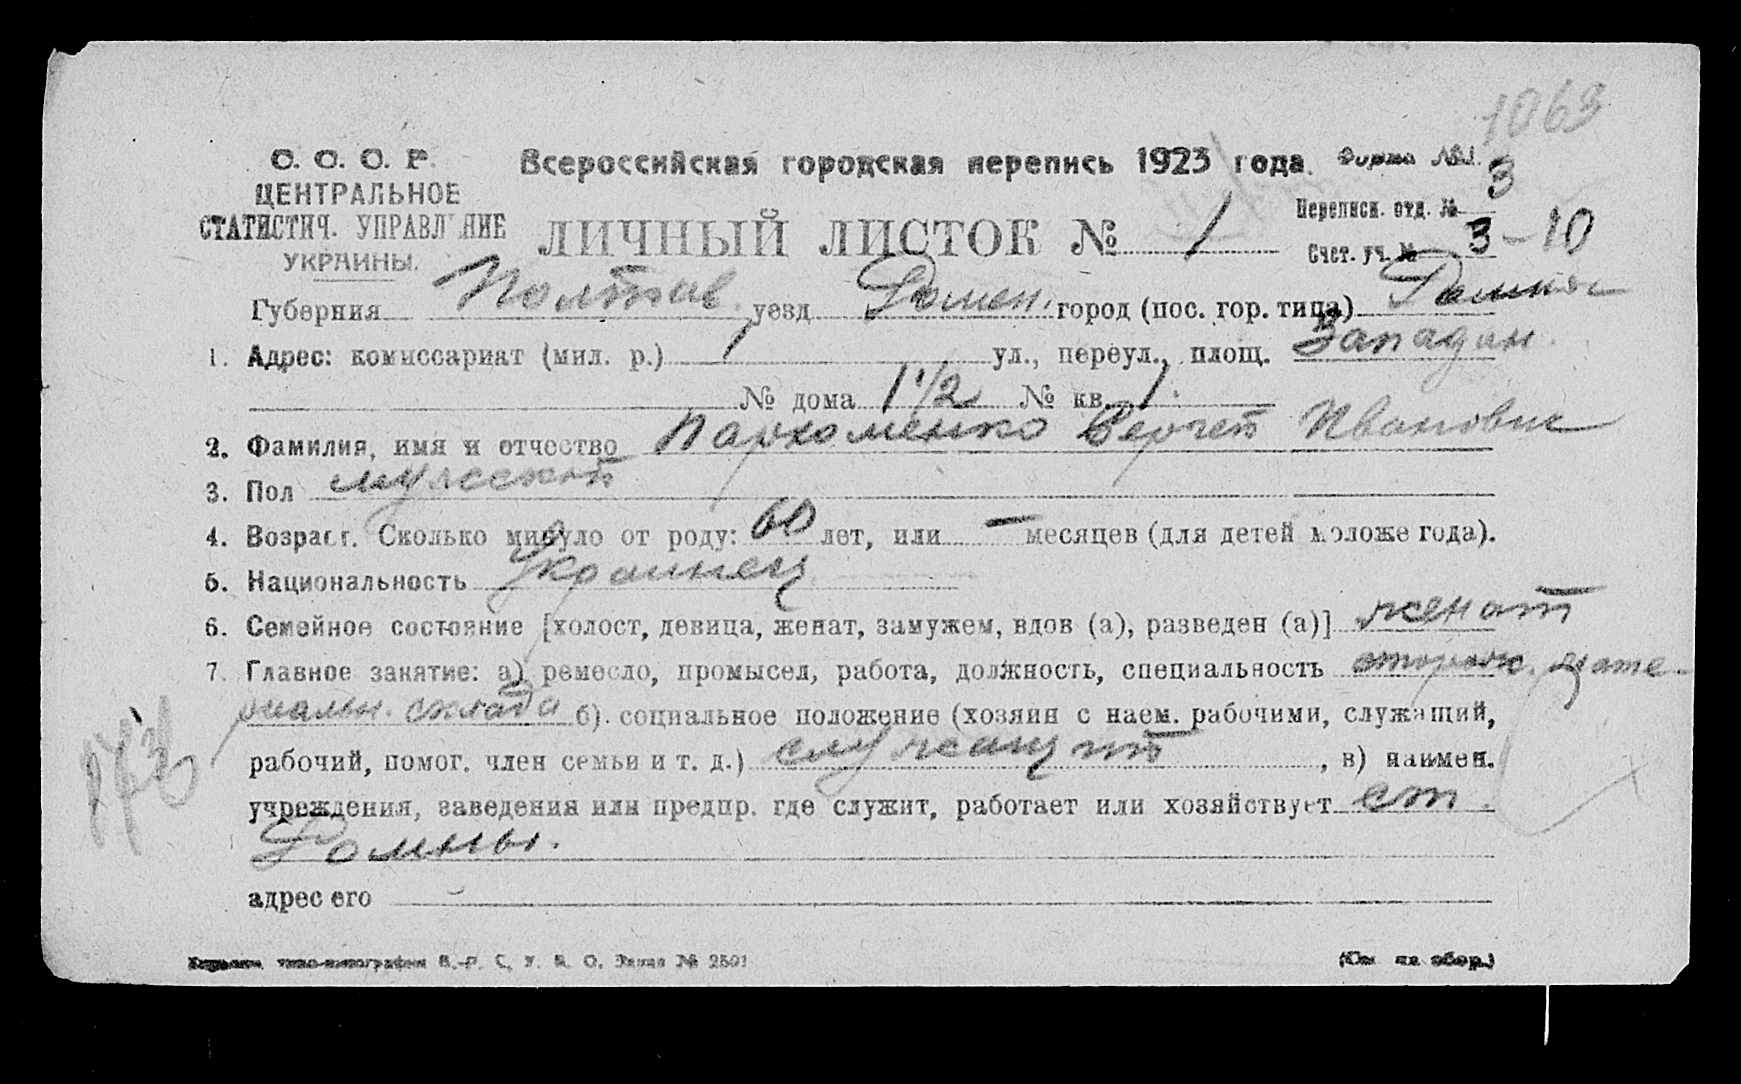 1063
С. С. С. Р.
ЦЕНТРАЛЬНОЕ
СТАТИСТИЧ. УПРАВЛЕНИЕ
УКРАИНЫ.
Всероссийская городская перепись 1923 года. Форма №1.
ЛИЧНЫЙ ЛИСТОК № 1
Переписн. отд. № 3
Счет. уч. № 3-10
Губерния Полтав. уезд Ромен. город (пос. гор. типа) Ромны
1. Адрес: комиссариат (мил. р.) 1 ул., переул., площ. Западн.
№ дома 1 1/2 № кв. 1.
2. Фамилия, имя и отчество Пархоменко Иванович
3. Пол мужской
4. Возраст. Сколько минуло от роду: 60 лет, или — месяцев (для детей моложе года).
5. Национальность Украинец
6. Семейное состояние [холост, девица, женат, замужем, вдов (а), разведен (а)] женат
7. Главное занятие: а) ремесло, промысел, работа, должность, специальность сторож. мате-
риальн. склада б). социальное положение (хозяин с наем. рабочими, служащий,
рабочий, помог. член семьи и т. д.) служащий, в) наимен.
учреждения, заведения или предпр. где служит, работает или хозяйствует ст.
Ромны.
адрес его —
типо-литография В.-Р. С. У. В. О. Заказ № 2501
(См. на обор.)